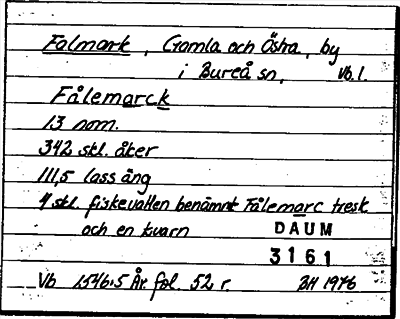 Falmark, Gamla och Östra, by
i Bureå sn, Vb. l.
Fålemarck
13 nom.
342 skl. åker
111,5 lass äng
1 skl. fiskevatten benämnt Fålemarc tresk
och en kvarn
DAUM
3161
Vb 1546:5 År fol. 52 r. BH 1976